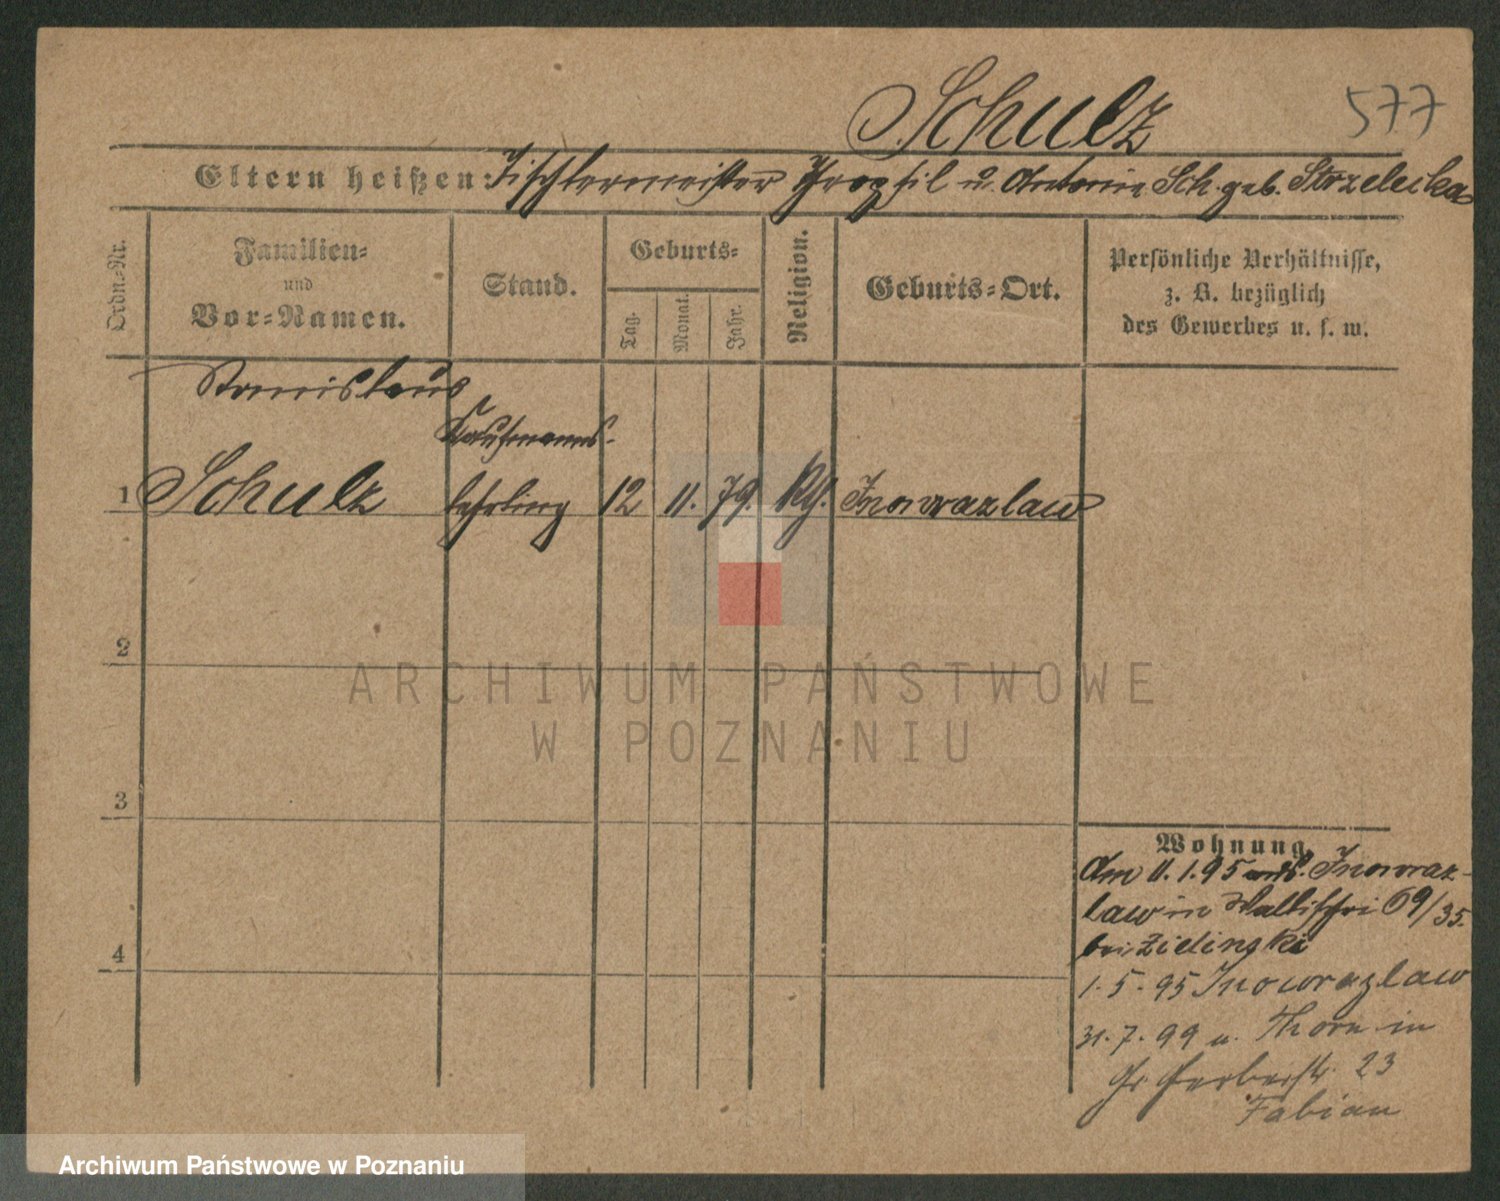 Schulz 577
Eltern heißen: Tischlermeister Theophil u. Antonie Sch. geb. Strzelecka
Ordn.-Nr.
Familien-
und
Vor-Namen.
Stand.
Geburts-
Tag.
Monat.
Jahr.
Religion.
Geburts-Ort.
Persönliche Verhältnisse,
z. B. bezüglich
des Gewerbes u. s. w.
Stanislaus
Kaufmanns-
1 Schulz lehrling 12 11. 79. kth. Inowrazlaw
2
3
4
Wohnung.
Am 11.1.95 aus Inowraz-
law in Wallischei 69/35.
bei Zielinski
1.5.95 Inowrazlaw
31.7.99 v. Thorn in
Gr. Gerberstr. 23
Fabian
ARCHIWUM PAŃSTWOWE
W POZNANIU
Archiwum Państwowe w Poznaniu